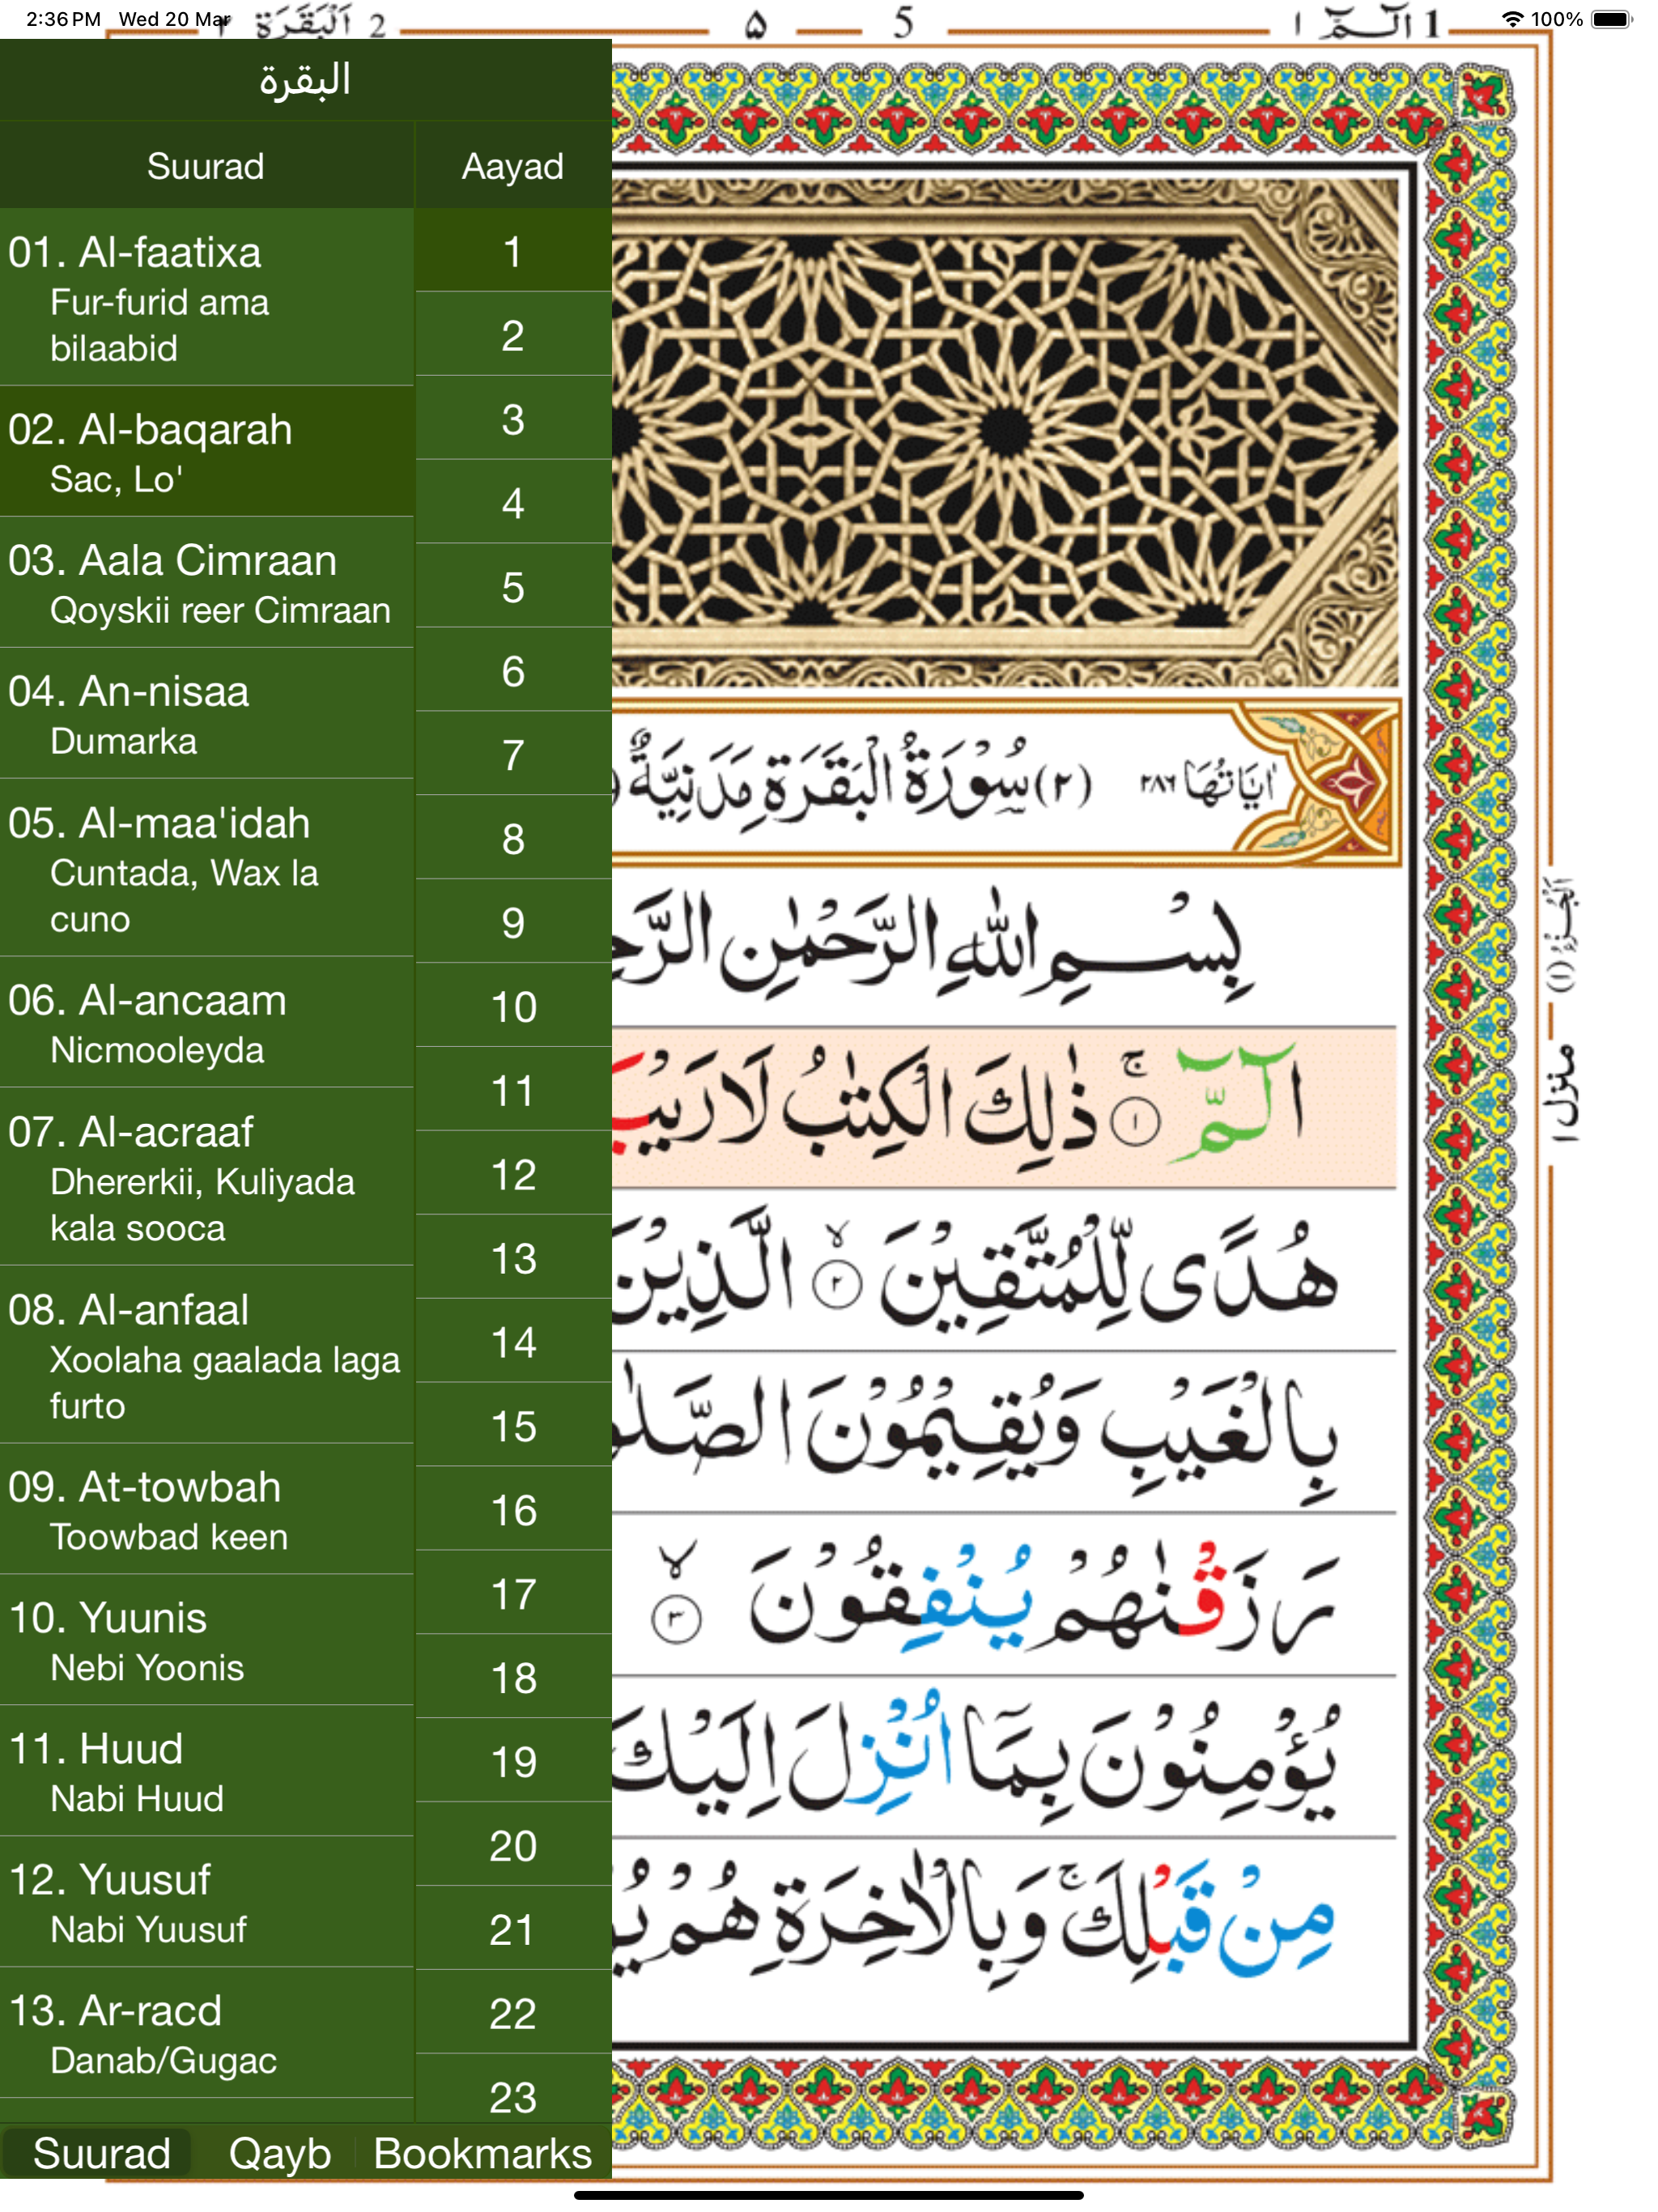 2:36 PM Wed 20 Mar
100%
2 اَلْبَقَرَة ٢
۵
5
1 الٓـمّٓ ١
البقرة
Suurad
Aayad
01. Al-faatixa
Fur-furid ama
bilaabid
02. Al-baqarah
Sac, Lo'
03. Aala Cimraan
Qoyskii reer Cimraan
04. An-nisaa
Dumarka
05. Al-maa'idah
Cuntada, Wax la
cuno
06. Al-ancaam
Nicmooleyda
07. Al-acraaf
Dhererkii, Kuliyada
kala sooca
08. Al-anfaal
Xoolaha gaalada laga
furto
09. At-towbah
Toowbad keen
10. Yuunis
Nebi Yoonis
11. Huud
Nabi Huud
12. Yuusuf
Nabi Yuusuf
13. Ar-racd
Danab/Gugac
1
2
3
4
5
6
7
8
9
10
11
12
13
14
15
16
17
18
19
20
21
22
23
Suurad
Qayb
Bookmarks
اٰيَاتُهَا ٢٨٦
(٢) سُوْرَةُ الْبَقَرَةِ مَدَنِيَّةٌ
بِسْمِ اللّٰهِ الرَّحْمٰنِ
الٓمّٓ ۚ ١ ذٰلِكَ الْكِتٰبُ لَا رَيْبَ
هُدًى لِّلْمُتَّقِيْنَ ۙ ٢ الَّذِيْنَ
بِالْغَيْبِ وَيُقِيْمُوْنَ
رَزَقْنٰهُمْ يُنْفِقُوْنَ ۙ ٣
يُؤْمِنُوْنَ بِمَآ اُنْزِلَ اِلَيْكَ
مِنْ قَبْلِكَ ۚ وَبِالْاٰخِرَةِ هُمْ
اَلْجُزْءُ (١)
منزل ١